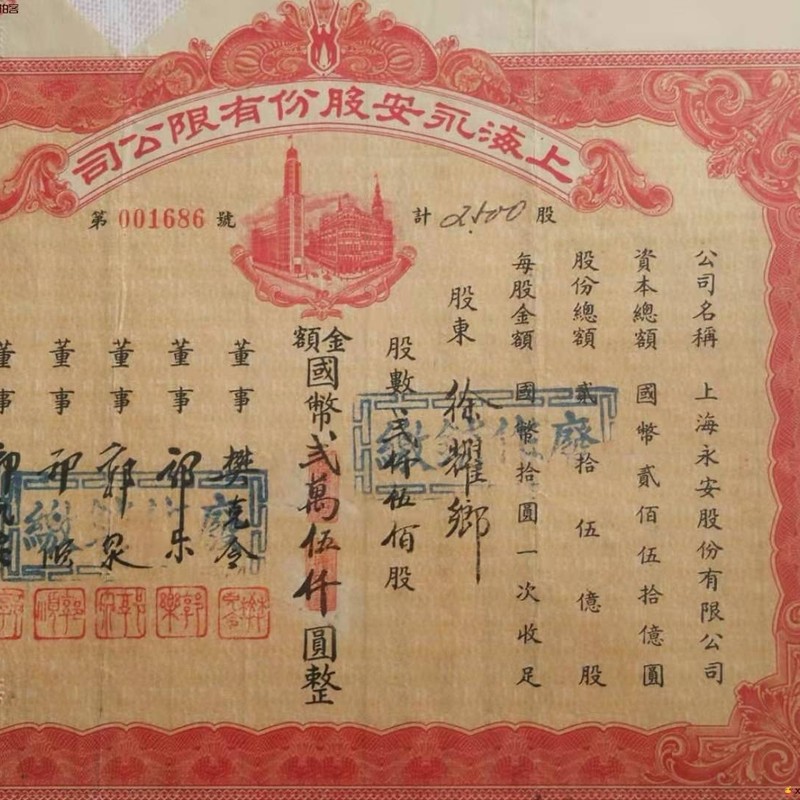 上海永安股份有限公司
第001686號
計2500股
公司名稱 上海永安股份有限公司
資本總額 國幣貳佰伍拾億圓
股份總額 貳拾伍億股
每股金額 國幣拾圓一次收足
股東 徐耀鄉
股數 弍仟伍佰股
金額國幣弍萬伍仟圓整
董事 樊克令
董事 郭樂
董事 郭泉
董事 郭順
董事